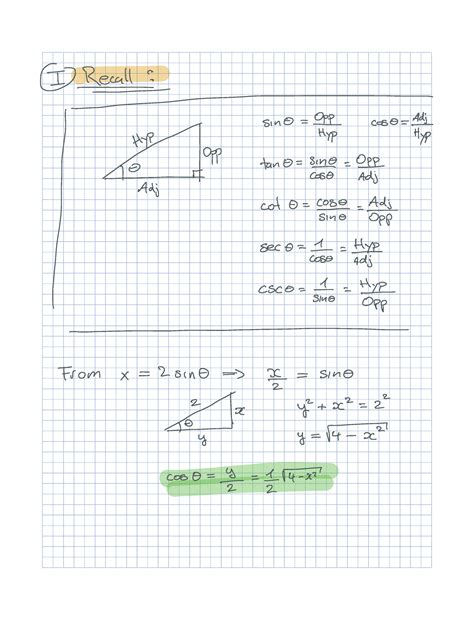 I Recall:
sinθ = Opp/Hyp   cosθ = Adj/Hyp
Hyp
Opp
θ
Adj
tanθ = sinθ/cosθ = Opp/Adj
cot θ = cosθ/sinθ = Adj/Opp
sec θ = 1/cosθ = Hyp/Adj
cscθ = 1/sinθ = Hyp/Opp
From x = 2 sinθ ⟹ x/2 = sinθ
2
x
θ
y
y² + x² = 2²
y = √(4 − x²)
cos θ = y/2 = 1/2 √(4−x²)